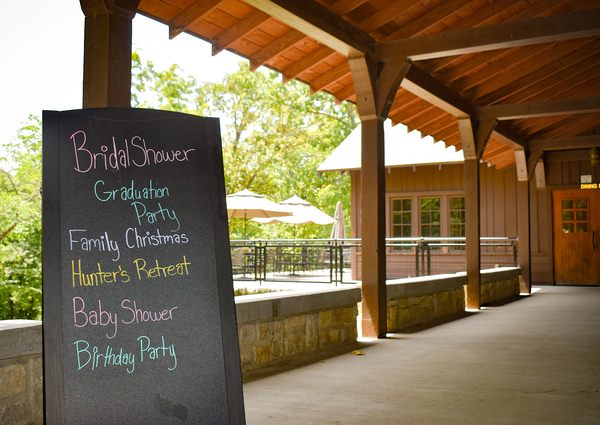 Bridal Shower
Graduation
Party
Family Christmas
Hunter's Retreat
Baby Shower
Birthday Party
DINING